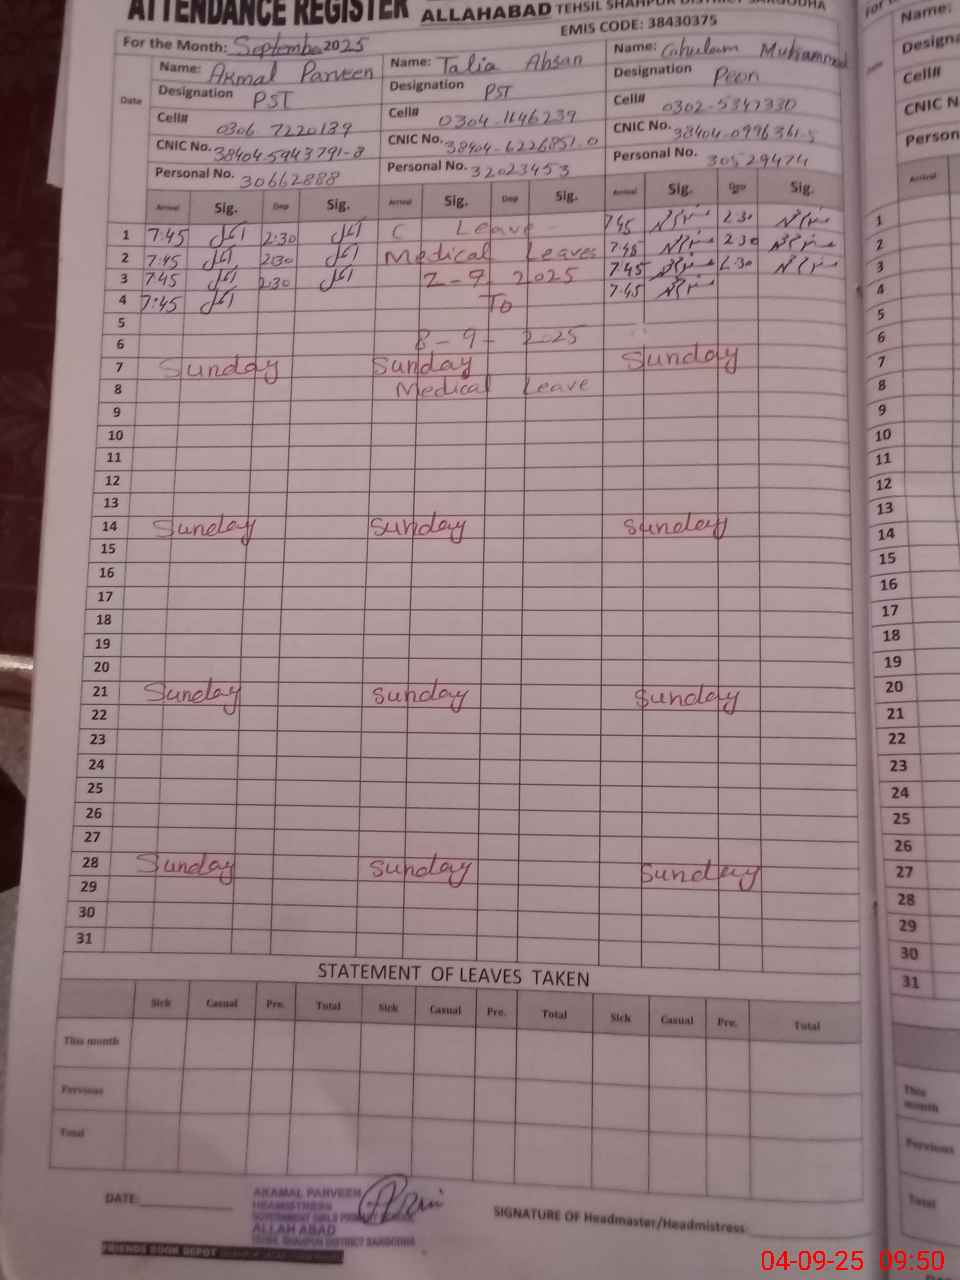 ATTENDANCE REGISTER ALLAHABAD TEHSIL SHAHPUR DISTRICT SARGODHA
EMIS CODE: 38430375
For the Month: September 2025
Date
Name: Akmal Parveen
Designation PST
Cell# 0306 7220139
CNIC No. 38404 5943791-8
Personal No. 30662888
Name: Talia Ahsan
Designation PST
Cell# 0304-1146239
CNIC No. 38404-6226851-0
Personal No. 32023453
Name: Ghulam Muhammad
Designation Peon
Cell# 0302-5347330
CNIC No. 38404-0996361-5
Personal No. 30529474
Arrival Sig. Dep Sig. Arrival Sig. Dep Sig. Arrival Sig. Dep Sig.
1 7:45 اکمل 2:30 اکمل C Leave 7:45 2:30
2 7:45 اکمل 2:30 اکمل Medical Leaves 7:45 2:30
3 7:45 اکمل 2:30 اکمل 2-9 2025 7:45 2:30
4 7:45 اکمل To 7:45
5
6 8-9- 2025
7 Sunday Sunday Sunday
8 Medical Leave
9
10
11
12
13
14 Sunday Sunday Sunday
15
16
17
18
19
20
21 Sunday Sunday Sunday
22
23
24
25
26
27
28 Sunday Sunday Sunday
29
30
31
STATEMENT OF LEAVES TAKEN
Sick Casual Pre. Total Sick Casual Pre. Total Sick Casual Pre. Total
This month
Pervious
Total
DATE:
AKAMAL PARVEEN
HEAMISTRESS
GOVERNMENT GIRLS PRIMARY SCHOOL
ALLAH ABAD
TEHSIL SHAHPUR DISTRICT SARGODHA
SIGNATURE OF Headmaster/Headmistress
FRIENDS BOOK DEPOT
Name:
Designa
Cell#
CNIC N
Person
Arrival
1
2
3
4
5
6
7
8
9
10
11
12
13
14
15
16
17
18
19
20
21
22
23
24
25
26
27
28
29
30
31
This month
Pervious
Total
04-09-25 09:50